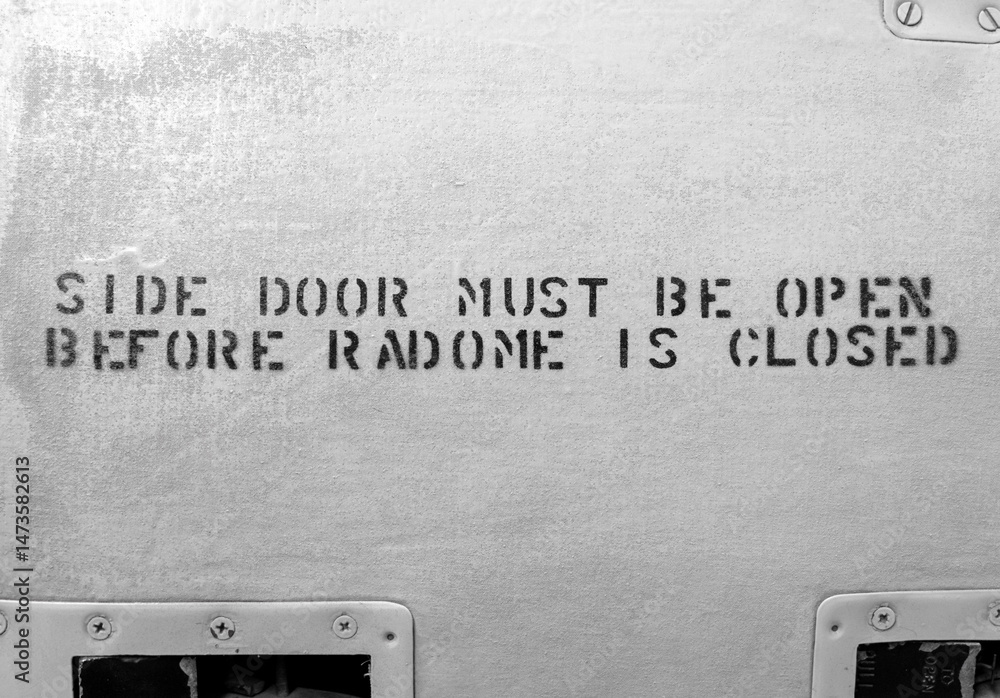 SIDE DOOR MUST BE OPEN
BEFORE RADOME IS CLOSED
Adobe Stock | #1473582613